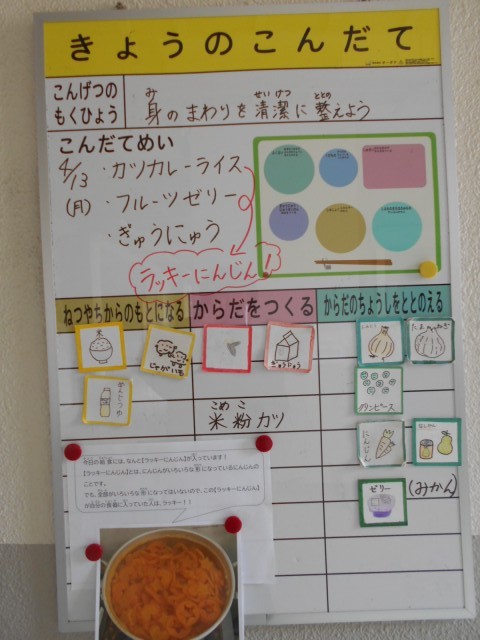 きょうのこんだて
こんげつの
もくひょう
身のまわりを清潔に整えよう
み
せいけつ
ととの
こんだてめい
4/13
(月)
・カツカレーライス
・フルーツゼリー
・ぎゅうにゅう
ラッキーにんじん!
ねつやちからのもとになる
からだをつくる
からだのちょうしをととのえる
米
じゃがいも
ぎゅうにゅう
たまねぎ
グリンピース
こめこ
米粉カツ
にんじん
ゼリー
(みかん)
今日の給食には、なんと【ラッキーにんじん】が入っています!
【ラッキーにんじん】とは、にんじんがいろいろな形になっているにんじんの
ことです。
でも、全部がいろいろな形になってはいないので、この【ラッキーにんじん】
が自分の食器に入っていた人は、ラッキー!!